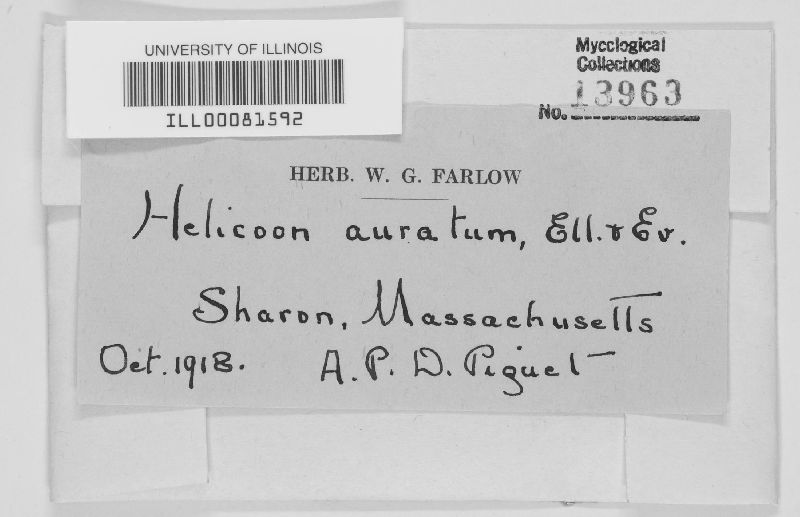 UNIVERSITY OF ILLINOIS
ILL00081592
Mycological
Collections
No. 13963
HERB. W. G. FARLOW
Helicoon auratum, Ell. & Ev.
Sharon, Massachusetts
Oct. 1918. A. P. D. Piguet